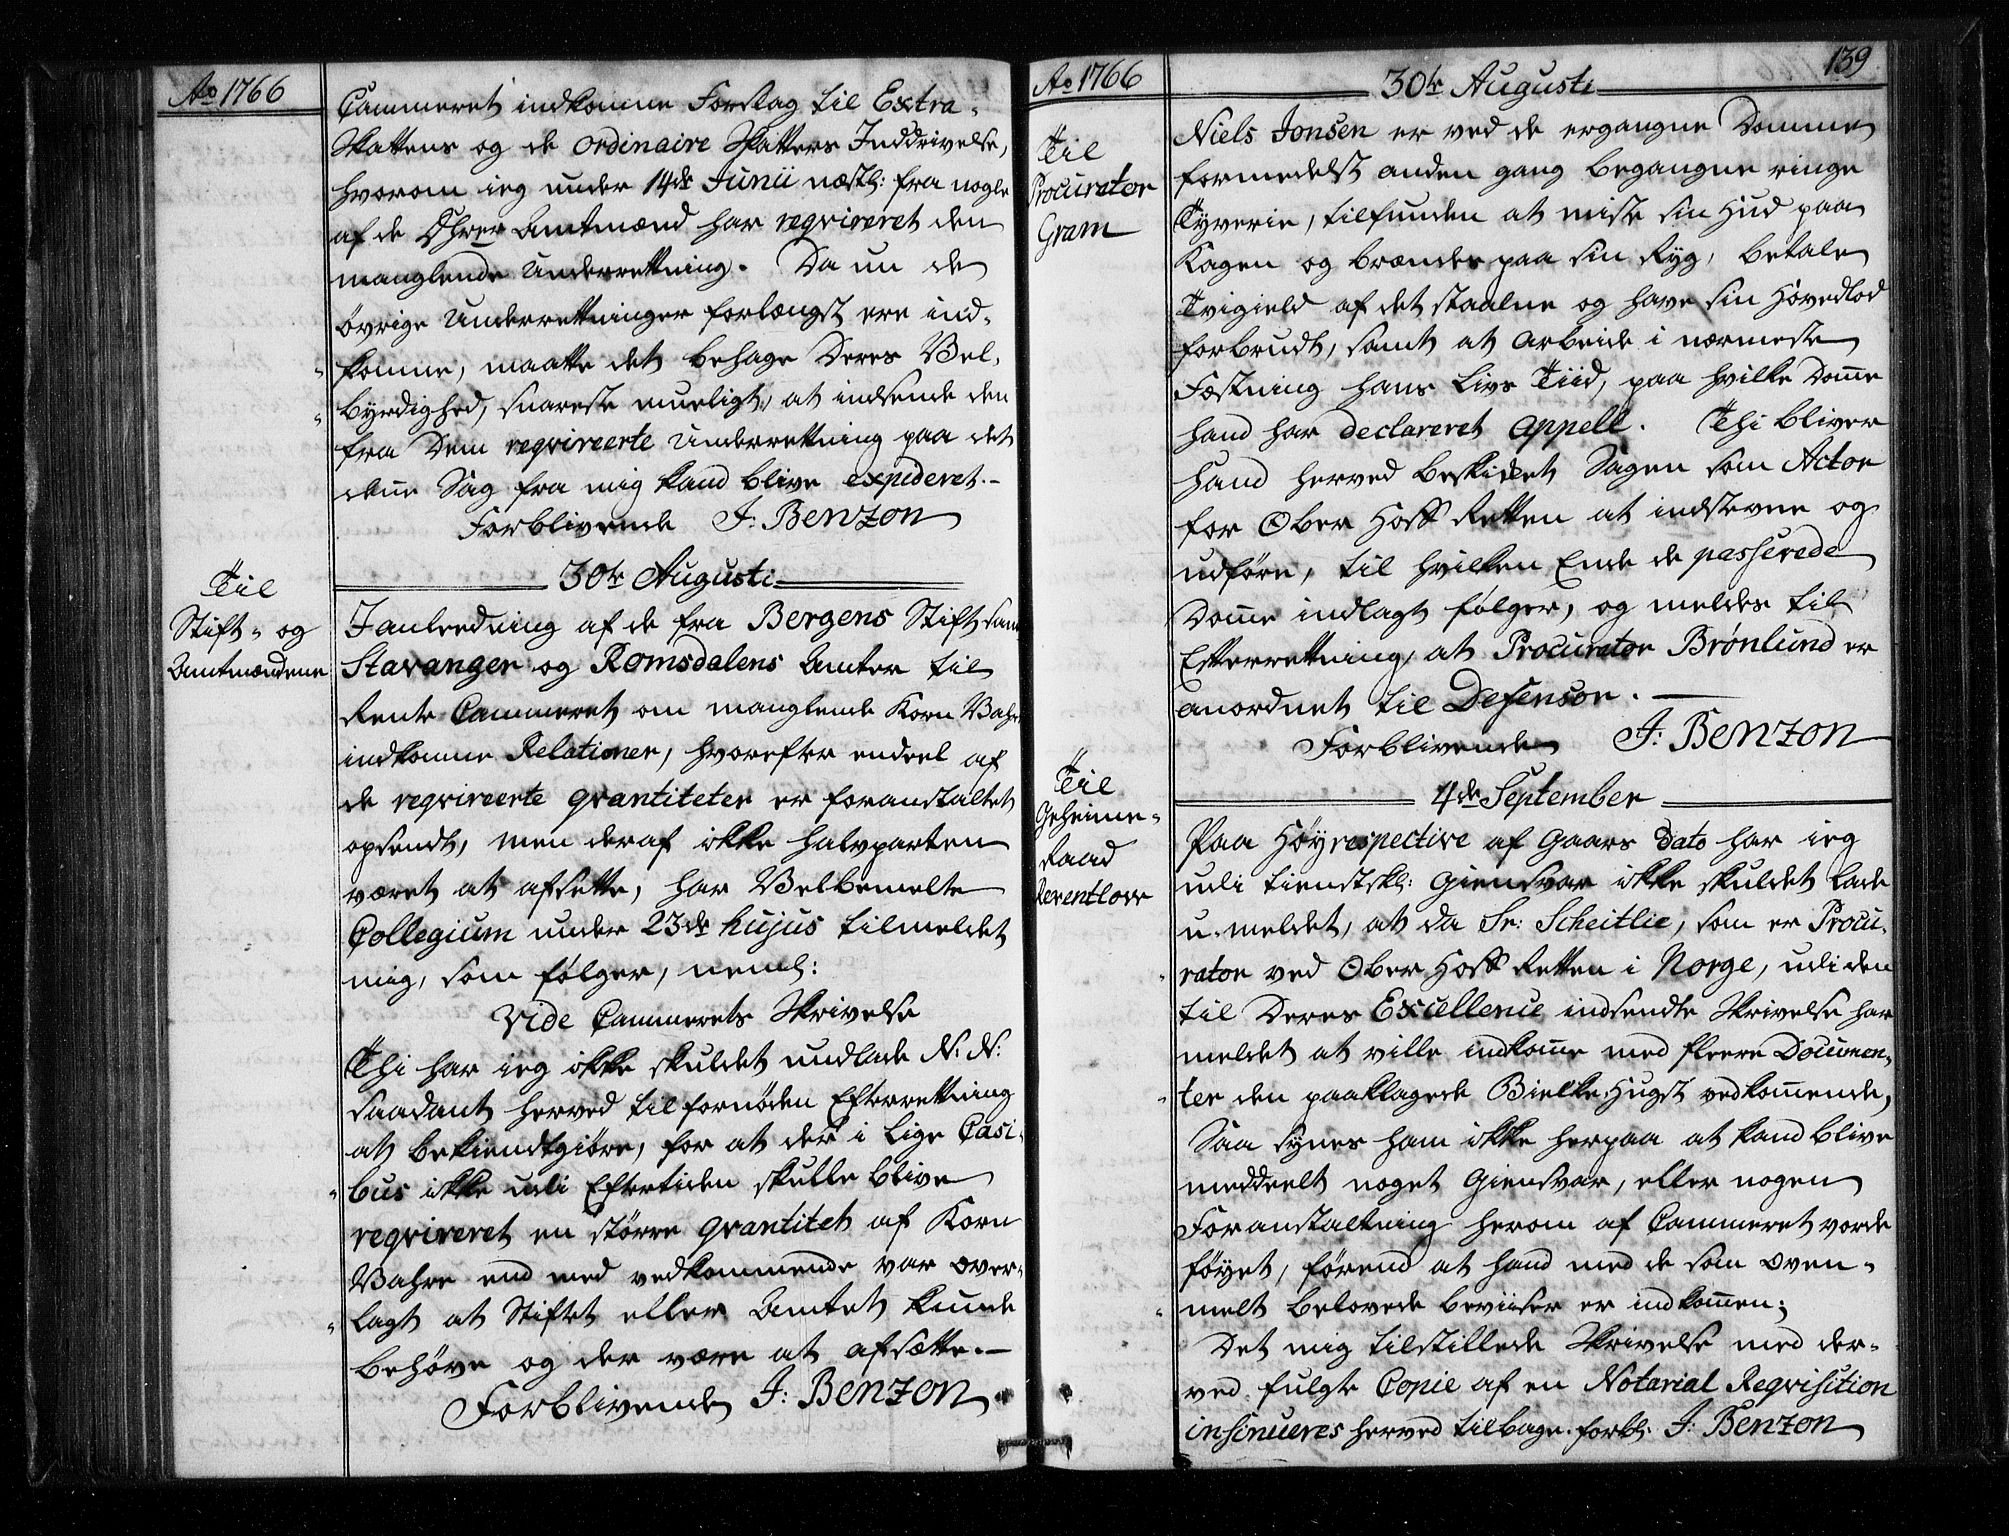 Ao 1766
Cammeret indkomne Forslag til Extra-
Skattens og de ordinaire Skatters Inddrivelse,
hvorom ieg under 14de Junii næstl: fra nogle
af de Hrer Amtmænd har reqvireret den
manglende Underretning. Da nu de
øvrige Underretninger forlængst ere ind-
komne, maatte det behage Deres Vel-
byrdighed, snareste mueligt, at indsende den
fra Dem reqvireerte Underretning paa det
denne Sag fra mig kand blive expederet.-
Forblivende J: Benzon
30te Augusti
Til
Stift- og
Amtmændene
I anleedning af de fra Bergens Stift samt
Stavanger og Romsdalens Amter til
Rente Cammeret om manglende Korn Vahre
indkomne Relationer, hvorefter endeel af
de reqvireerte qvantiteter er foranstaltet
opsendt, men deraf ikke halvparten
været at afsette, har Velbemelte
Collegium under 23de hujus tilmeldet
mig, som følger, neml:
Vide Cammerets Skrivelse
Thi har ieg ikke skuldet undlade N: N:
saadant herved til fornøden Efterretning
at bekiendtgiøre, for at der i lige Casi-
bus ikke udi Eftertiden skulle blive
reqvireret en større qvantitet af Korn
Vahre end med vedkommende var over-
lagt at Stiftet eller Amtet kunde
behøve og der være at afsætte.-
Forblivende J: Benzon
Ao 1766
139
30te Augusti
Til
Procurator
Gram
Niels Jonsen er ved de ergangne Domme
formedelst anden gang begangne ringe
Tyverie, tilfunden at miste sin Hud paa
Kagen og brændes paa sin Ryg, betale
Tvigield af det staalne og have sin Hovedlod
forbrudt, samt at arbeide i nærmeste
Fæstning hans Livs Tiid, paa hvilke Domme
hand har declareret Appell. Thi bliver
Hand herved beskicket Sagen som Actor
for Ober Hoff Retten at indstevne og
udføre, til hvilken Ende de passerede
Domme indlagt følger, og meldes til
Efterretning, at Procurator Brønlund er
anordnet til Defensor.
Forblivende J: Benzon
4de September
Til
Geheime-
Raad
Reventlow
Paa Høyrespective af Gaars Dato har ieg
udi tienstskl: Giensvar ikke skuldet lade
u-meldet, at da Sr: Scheitlie, som er Procu-
rator ved Ober Hoff Retten i Norge, udi den
til Deres Excellence indsendte Skrivelse har
meldet at ville indkomme med fleere Documen-
ter den paaklagede Bielke-Hugst vedkommende,
Saa synes ham ikke herpaa at kand blive
meddeelt noget Giensvar, eller nogen
Foranstaltning herom af Cammeret vorde
føyet, førend at hand med de som oven-
melt belovede beviiser er indkommen;
Det mig tilstillede Skrivelse med der-
ved fulgte Copie af en Notarial Reqvisition
insinueres herved tilbage. forbl: J: Benzon